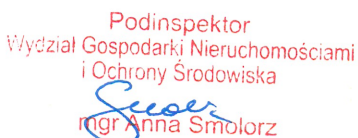 Podinspektor
Wydział Gospodarki Nieruchomościami
i Ochrony Środowiska
mgr Anna Smolorz